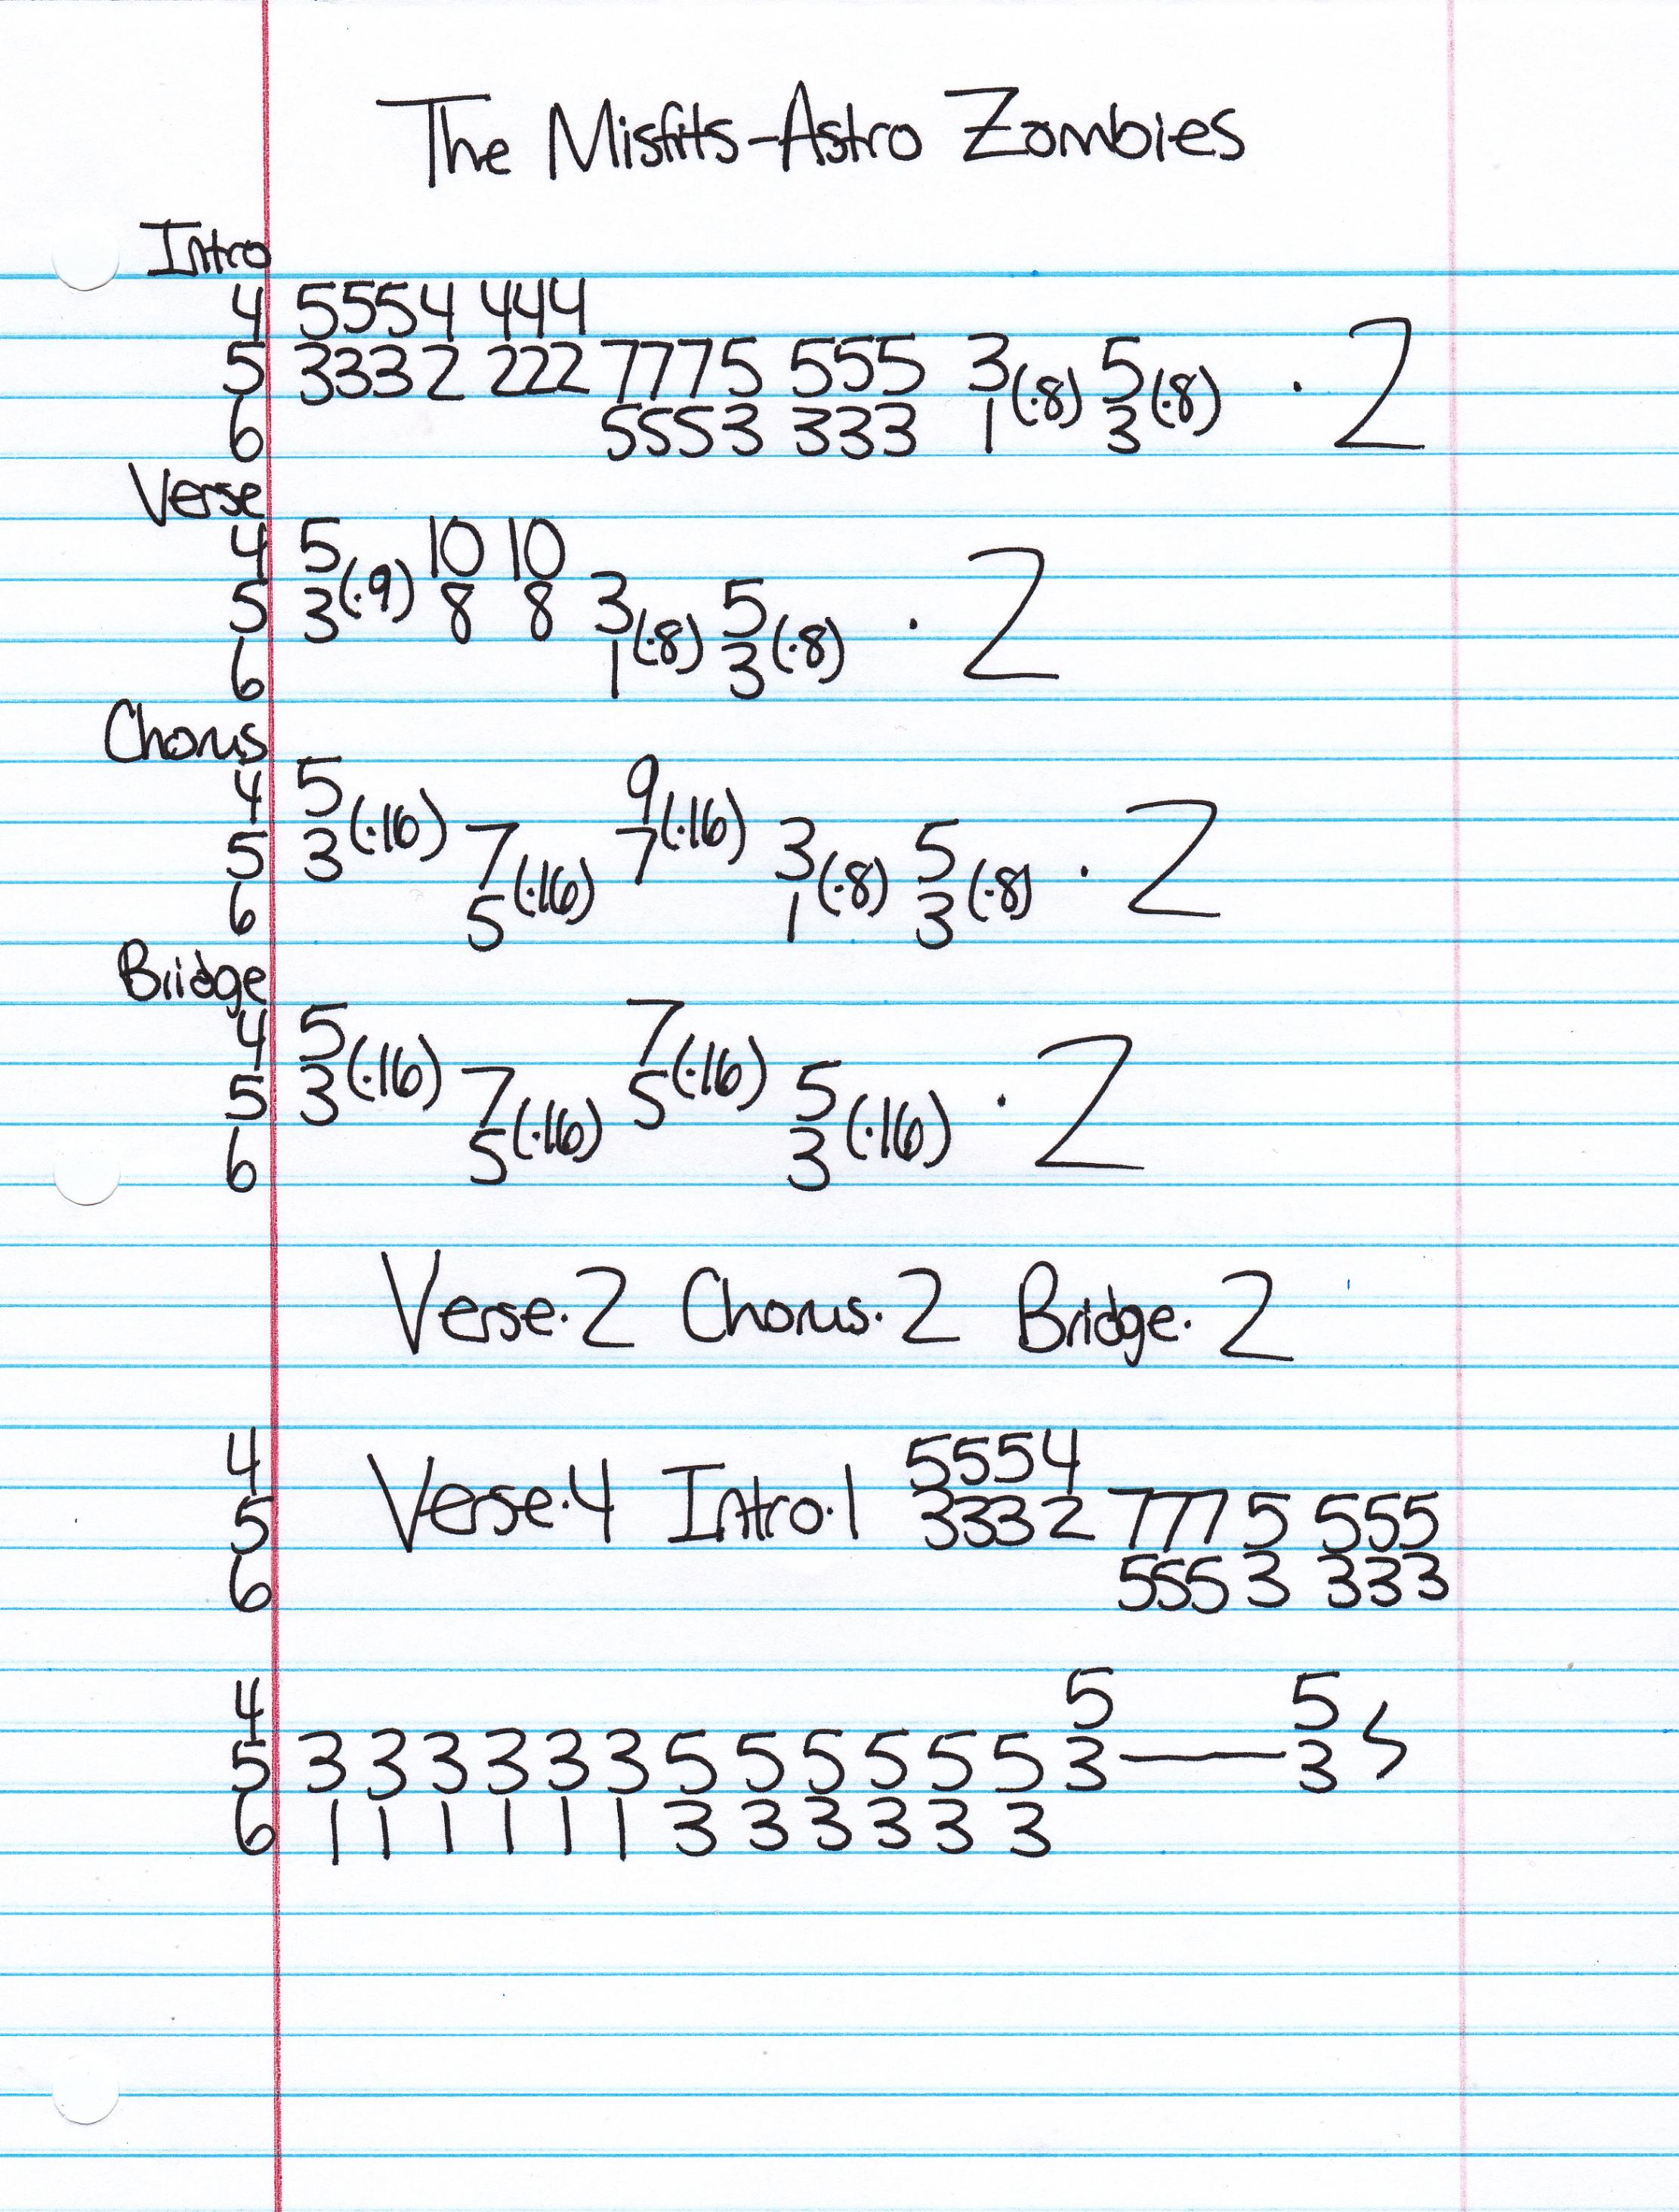 The Misfits-Astro Zombies
Intro
4 5554 444
5 3332 222 7775 555 3(·8) 5(·8) · 2
6 5553 333 1 3
Verse
4 5(·9) 10 10
5 3 8 8 3(·8) 5(·8) · 2
6 1 3
Chorus
4 5(·16) 9(·16)
5 3 7(·16) 7 3(·8) 5(·8) · 2
6 5 1 3
Bridge
4 5(·16) 7(·16)
5 3 7(·16) 5 5(·16) · 2
6 5 3
Verse·2 Chorus·2 Bridge·2
4 5554
5 Verse·4 Intro·1 3332 777 5 555
6 555 3 333
4 5 5
5 3 3 3 3 3 3 5 5 5 5 5 5 3 — 3
6 1 1 1 1 1 1 3 3 3 3 3 3